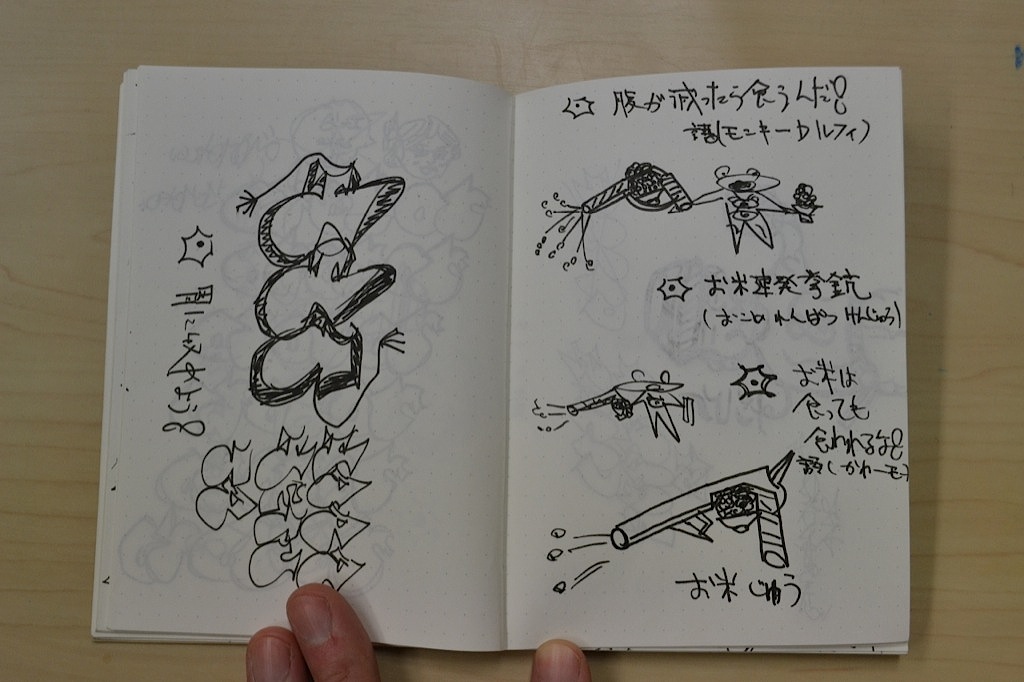 腹が減ったら食うんだ!
語(モンキーD ルフィ)
お米連発拳銃
(おこめ れんぱつ けんじゅう)
お米は
食っても
食われるな!
語(かわーモ)
お米じゅう